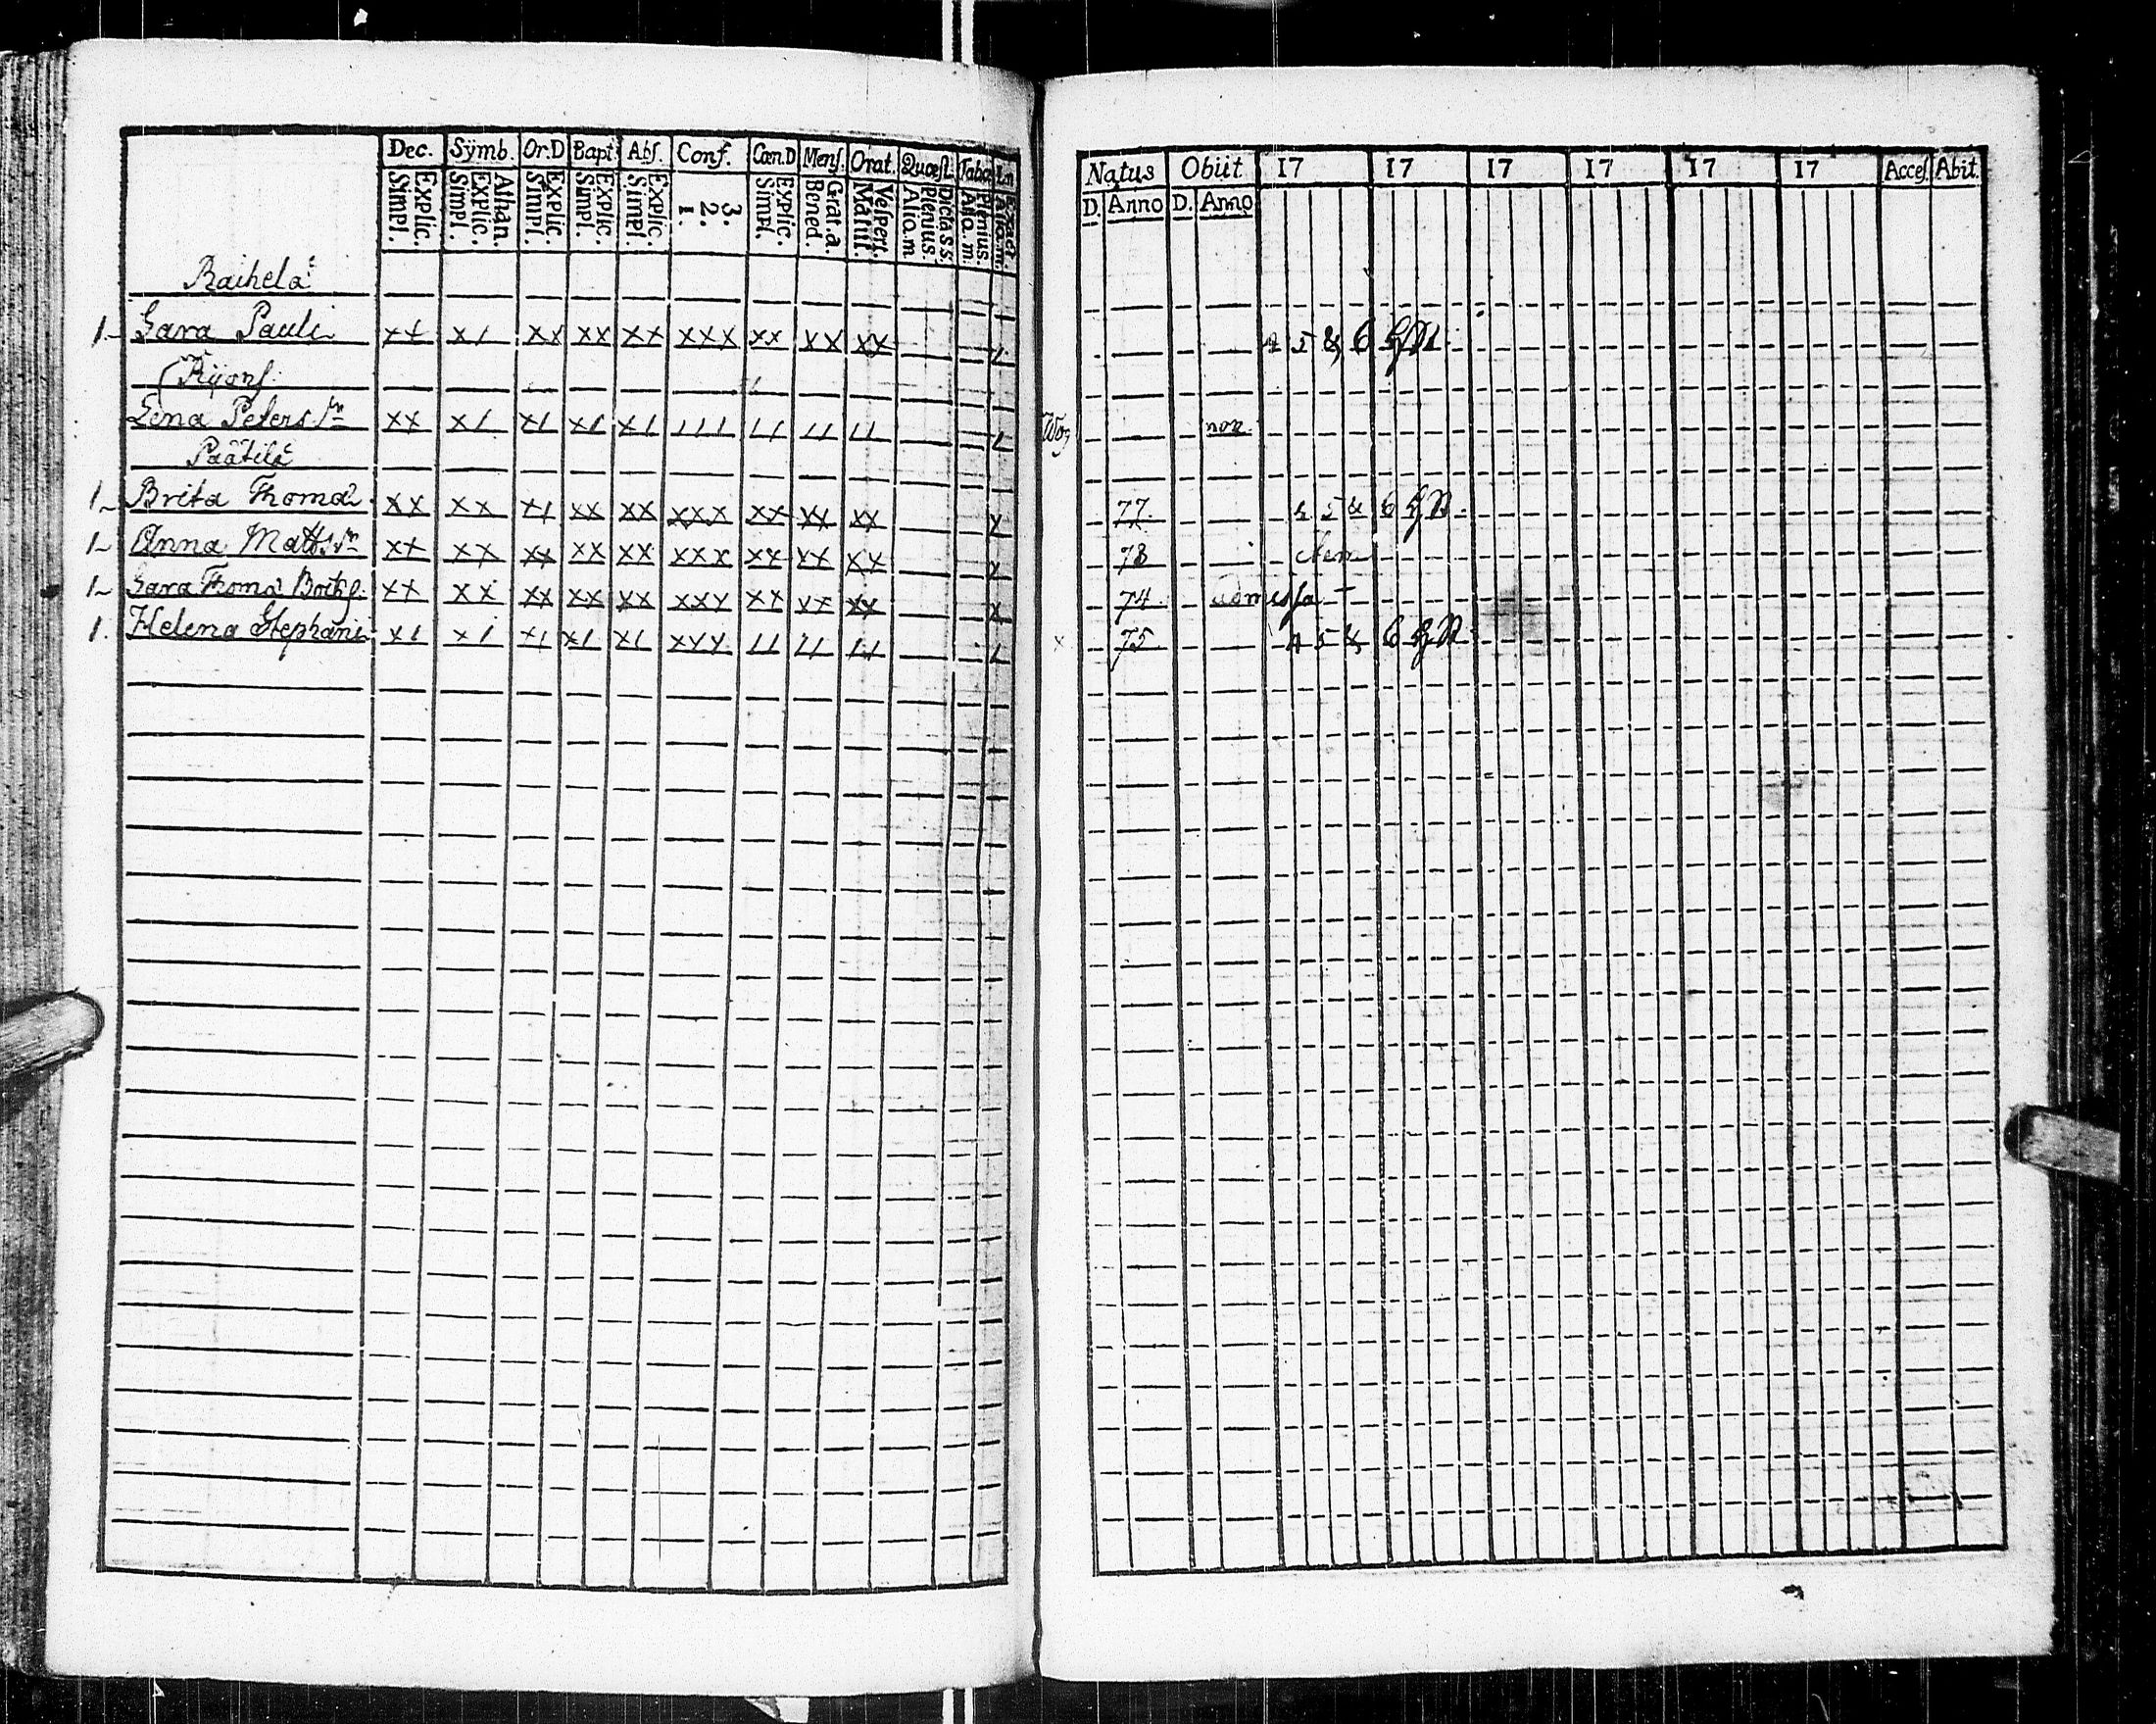 Dec. Sÿmb. Or.D Bapt. Abs. Conf. Cœn.D Mens. Orat. Quæst. Tabœ
Explic. Simpl. Athan. Explic. Simpl. Explic. Simpl. Explic. Simpl. Explic. Simpl. 3. 2. 1. Explic. Simpl. Grat. a. Bened. Vespert. Matut. Dict. a S.S. Plenius. Alio. m Plenius. Alio. m.
Raihela
1 Sara Pauli xx x1 xx xx xx xxx xx xx xx 1
Rÿons
Lena Peters dr xx x1 x1 x1 x1 111 11 11 11 1
Päätilä
1 Brita Thomæ xx xx x1 xx xx xxx xx xx xx x
1 Anna Matts dr xx xx xx xx xx xxx xx xx xx x
1 Sara Thomæ xx xx xx xx xx xxx xx xx xx x
1. Helena Stephani x1 x1 x1 x1 x1 xxx 11 11 11 1
Natus Obiit 17 17 17 17 17 17 Acces. Abit.
D. Anno D. Anno
4 5 & 6
non
77. 4 5 & 6
78
74 admissa
x 75. 4 5 & 6